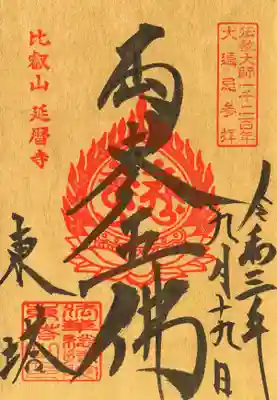 伝教大師一千二百年
大遠忌参拝
令和三年
九月十九日
五佛
比叡山 延暦寺
東塔